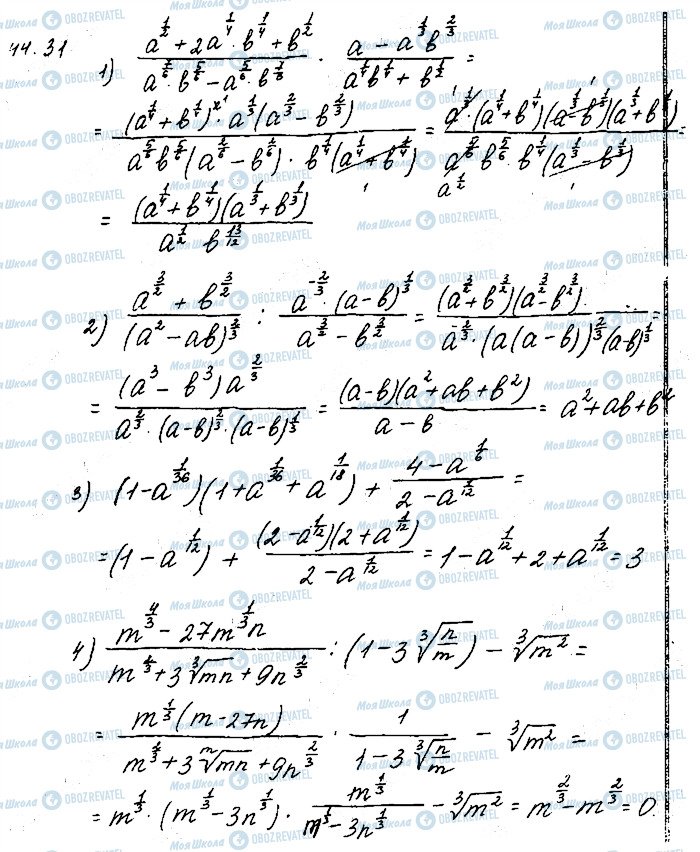 44.31
1) (a^{1/2} + 2a^{1/4} · b^{1/4} + b^{1/2}) / (a^{5/6} · b^{5/6} - a^{5/6} · b^{1/3}) · (a - a^{1/3} b^{2/3}) / (a^{1/4} b^{1/4} + b^{1/2}) =
= ((a^{1/4} + b^{1/4})^{2} · a^{1/3} (a^{2/3} - b^{2/3})) / (a^{5/6} b^{5/6} ( · b^{1/4} (a^{1/4} + b^{1/4})) = (a^{1/3} · (a^{1/4} + b^{1/4})(a^{1/3} - b^{1/3})(a^{1/3} + b^{1/3})) / (a^{5/6} b^{5/6} · b^{1/4} (a^{1/3} - b^{1/3})) =
a^{1/2}
= ((a^{1/4} + b^{1/4})(a^{1/3} + b^{1/3})) / (a^{1/2} b^{13/12})
2) (a^{3/2} + b^{3/2}) / (a^2 - ab)^{2/3} : (a^{-2/3} · (a-b)^{1/3}) / (a^{3/2} - b^{3/2}) = ((a^{3/2} + b^{3/2})(a^{3/2} - b^{3/2})) / (a^{-2/3} · (a(a-b))^{2/3} (a-b)^{1/3}) =
= ((a^3 - b^3) a^{2/3}) / (a^{2/3} · (a-b)^{2/3} · (a-b)^{1/3}) = ((a-b)(a^2+ab+b^2)) / (a-b) = a^2+ab+b^2
3) (1-a^{1/36})(1+a^{1/36}+a^{1/18}) + (4-a^{1/6}) / (2-a^{1/12}) =
= (1-a^{1/12}) + ((2-a^{1/12})(2+a^{1/12})) / (2-a^{1/12}) = 1-a^{1/12}+2+a^{1/12} = 3
4) (m^{4/3} - 27m^{1/3}n) / (m^{2/3} + 3∛(mn) + 9n^{2/3}) : (1-3∛(n/m)) - ∛(m^2) =
= (m^{1/3}(m-27n)) / (m^{2/3} + 3∛(mn) + 9n^{2/3}) · 1 / (1-3∛(n/m)) - ∛(m^2) =
= m^{1/3} · (m^{1/3} - 3n^{1/3}) · m^{1/3} / (m^{1/3} - 3n^{1/3}) - ∛(m^2) = m^{2/3} - m^{2/3} = 0.
МояШкола OBOZREVATEL